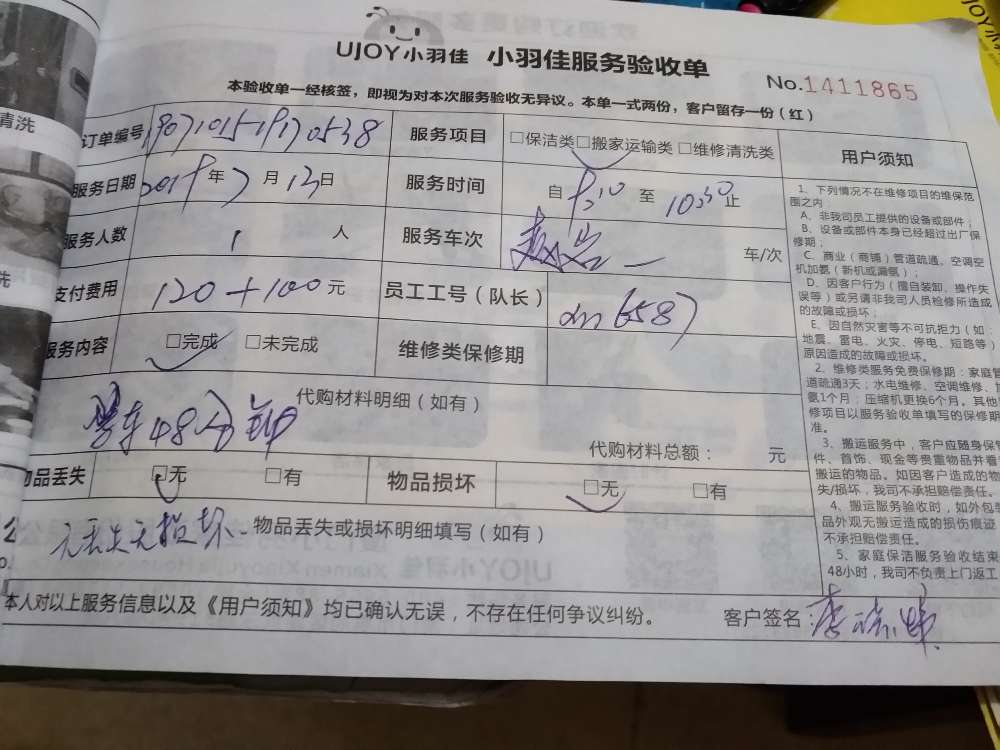 UJOY小羽佳 小羽佳服务验收单
No.1411865
本验收单一经核签，即视为对本次服务验收无异议。本单一式两份，客户留存一份（红）
清洗
订单编号 服务项目 □保洁类 □搬家运输类 □维修清洗类
服务日期 2019年7月13日 服务时间 自 至 10:30 止
服务人数 1 人 服务车次 一 车/次
支付费用 120+100 元 员工工号（队长） 6587
服务内容 □完成 □未完成 维修类保修期
代购材料明细（如有）
48分钟
代购材料总额： 元
物品丢失 □无 □有 物品损坏 □无 □有
物品丢失或损坏明细填写（如有）
无丢失无损坏
本人对以上服务信息以及《用户须知》均已确认无误，不存在任何争议纠纷。
客户签名：
用户须知
1、下列情况不在维修项目的维保范
围之内：
A、非我司员工提供的设备或部件；
B、设备或部件本身已经超过出厂保
修期；
C、商业（商铺）管道疏通、空调空
机加氨（新机或漏氨）；
D、因客户行为（擅自装卸、操作失
误等）或另请非我司人员检修所造成
的故障或损坏；
E、因自然灾害等不可抗拒力（如：
地震、雷电、火灾、停电、短路等）
原因造成的故障或损坏。
2、维修类服务免费保修期：家庭管
道疏通3天；水电维修、空调维修、
氨1个月；压缩机更换6个月。其他
修项目以服务验收单填写的保修期
准。
3、搬运服务中，客户应随身保管
件、首饰、现金等贵重物品并看
搬运的物品。如因客户造成的物
失/损坏，我司不承担赔偿责任。
4、搬运服务验收时，如外包装
品外观无搬运造成的损伤痕迹
不承担赔偿责任。
5、家庭保洁服务验收结束
48小时，我司不负责上门返工